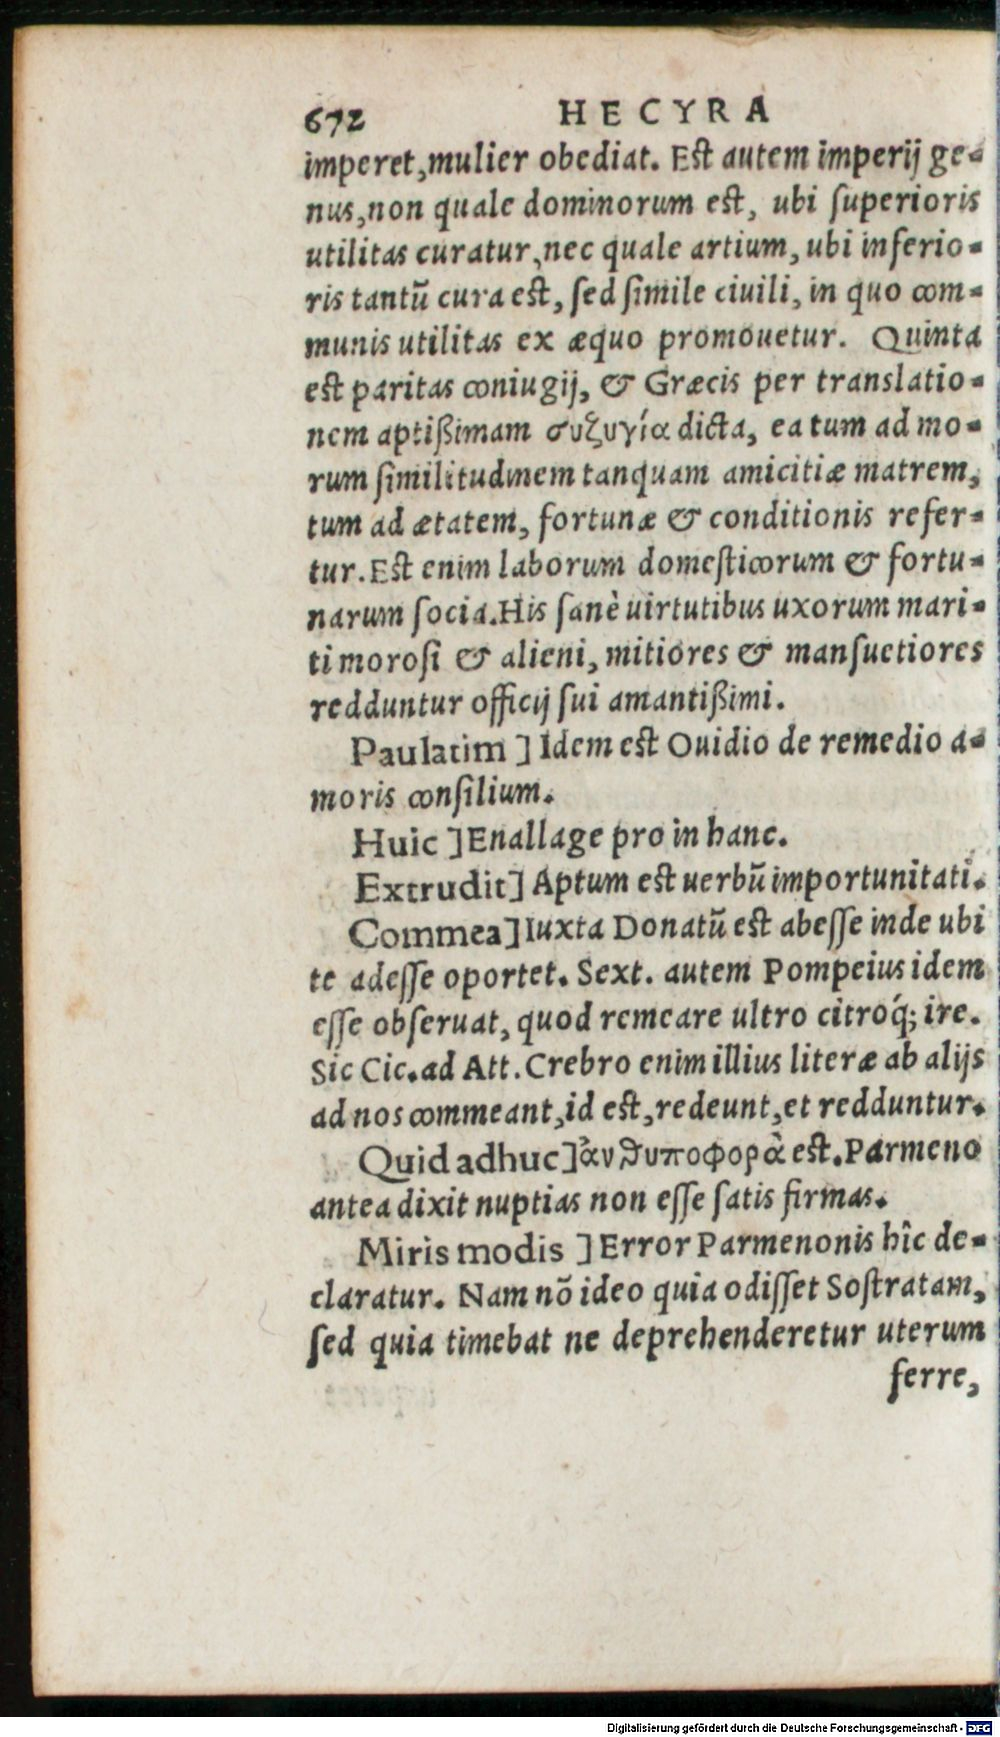 672 HECYRA
imperet, mulier obediat. Est autem imperij ge-
nus, non quale dominorum est, ubi superioris
utilitas curatur, nec quale artium, ubi inferio-
ris tantũ cura est, sed simile ciuili, in quo com-
munis utilitas ex æquo promouetur. Quinta
est paritas coniugij, & Græcis per translatio-
nem aptißimam συζυγία dicta, ea tum ad mo-
rum similitudinem tanquam amicitiæ matrem,
tum ad ætatem, fortunæ & conditionis refer-
tur. Est enim laborum domesticorum & fortu-
narum socia. His sanè uirtutibus uxorum mari-
ti morosi & alieni, mitiores & mansuetiores
redduntur officij sui amantißimi.
Paulatim ] Idem est Ouidio de remedio a-
moris consilium.
Huic ] Enallage pro in hanc.
Extrudit] Aptum est uerbũ importunitati.
Commea] Iuxta Donatũ est abesse inde ubi
te adesse oportet. Sext. autem Pompeius idem
esse obseruat, quod remeare ultro citroq́; ire.
Sic Cic. ad Att. Crebro enim illius literæ ab alijs
ad nos commeant, id est, redeunt, et redduntur.
Quid adhuc] ἀνθυποφορὰ est. Parmeno
antea dixit nuptias non esse satis firmas.
Miris modis ] Error Parmenonis hîc de-
claratur. Nam nõ ideo quia odisset Sostratam,
sed quia timebat ne deprehenderetur uterum
ferre,
Digitalisierung gefördert durch die Deutsche Forschungsgemeinschaft - DFG